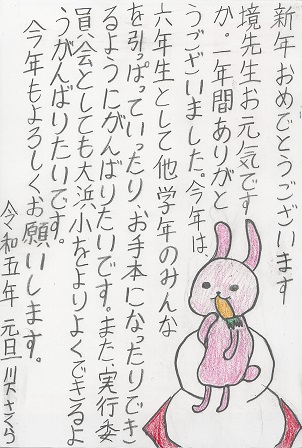 新年おめでとうございます
境先生お元気です
か。一年間ありがと
うございました。今年は、
六年生として他学年のみんな
を引っぱっていったり、お手本になったりでき
るようにがんばりたいです。また、実行委
員会としても大浜小をよりよくできるよ
うがんばりたいです。
今年もよろしくお願いします。
令和五年 元旦 川下さくら